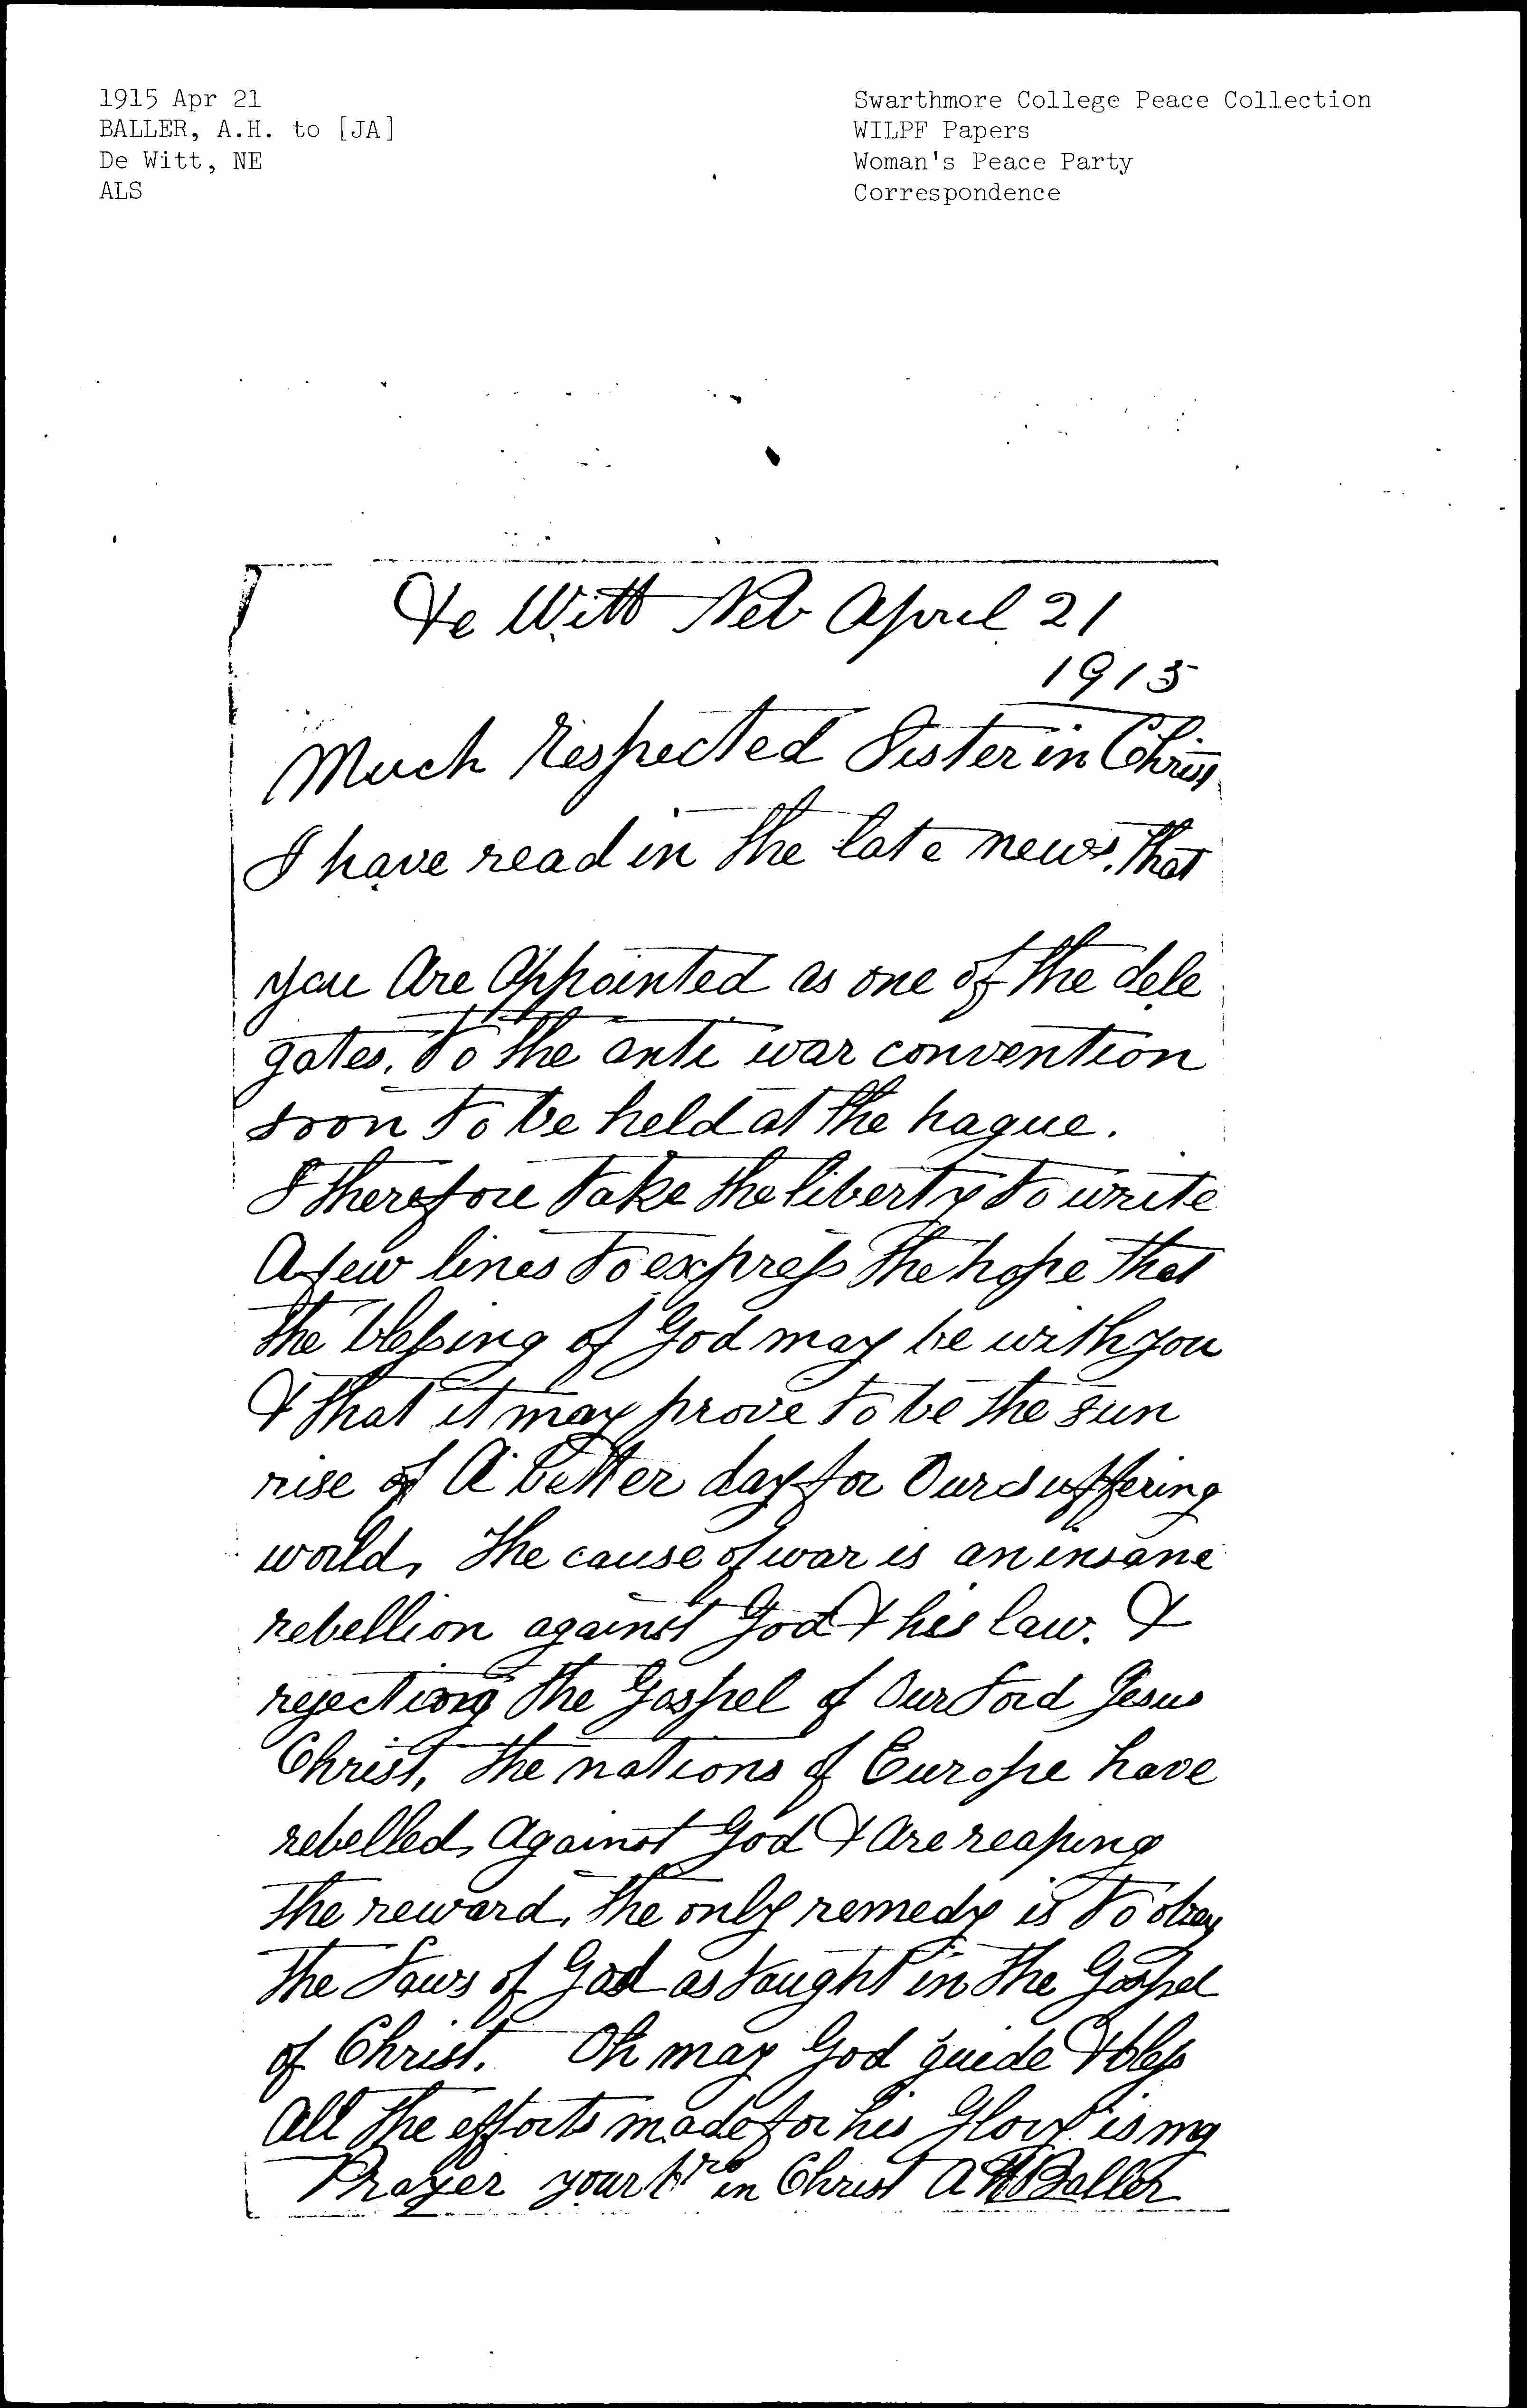 1915 Apr 21
BALLER, A.H. to [JA]
De Witt, NE
ALS
Swarthmore College Peace Collection
WILPF Papers
Woman's Peace Party
Correspondence
De Witt Neb April 21
1915
Much Respected Sister in Christ
I have read in the late news. that
you Are Appointed as one of the dele
gates. to the anti war convention
soon to be held at the hague.
I therefore take the liberty to write
A few lines to express the hope that
the blessing of God may be with you
& that it may prove to be the sun
rise of A better day for Our suffering
world, The cause of war is an insane
rebellion against God & his law. &
rejecting the Gospel of Our Lord Jesus
Christ, the nations of Europe have
rebelled, Against God & Are reaping
the reward, the only remedy is to obey
the Laws of God as taught in the Gospel
of Christ. Oh may God guide & bless
All the efforts made for his Glory is my
Prayer your bro in Christ A H Baller